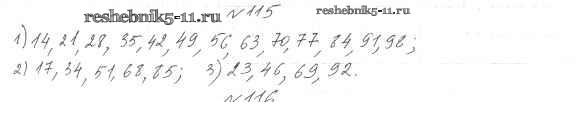 reshebnik5-11.ru №115 reshebnik5-11.ru
1) 14, 21, 28, 35, 42, 49, 56, 63, 70, 77, 84, 91, 98;
2) 17, 34, 51, 68, 85; 3) 23, 46, 69, 92.
№116